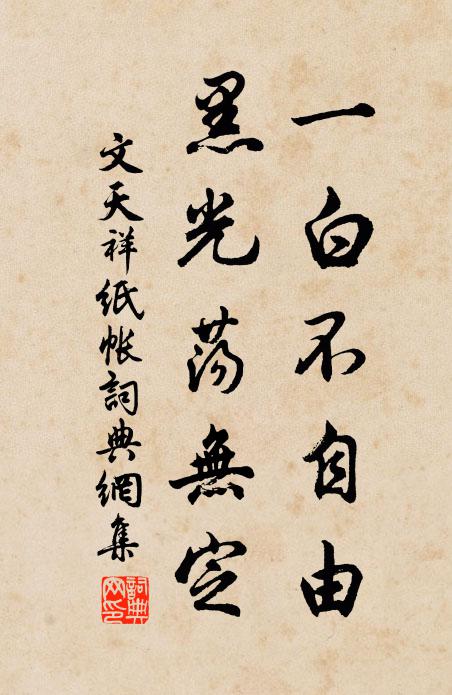 一白不自由
黑光荡無定
文天祥紙帳詞典網集
詞典網印